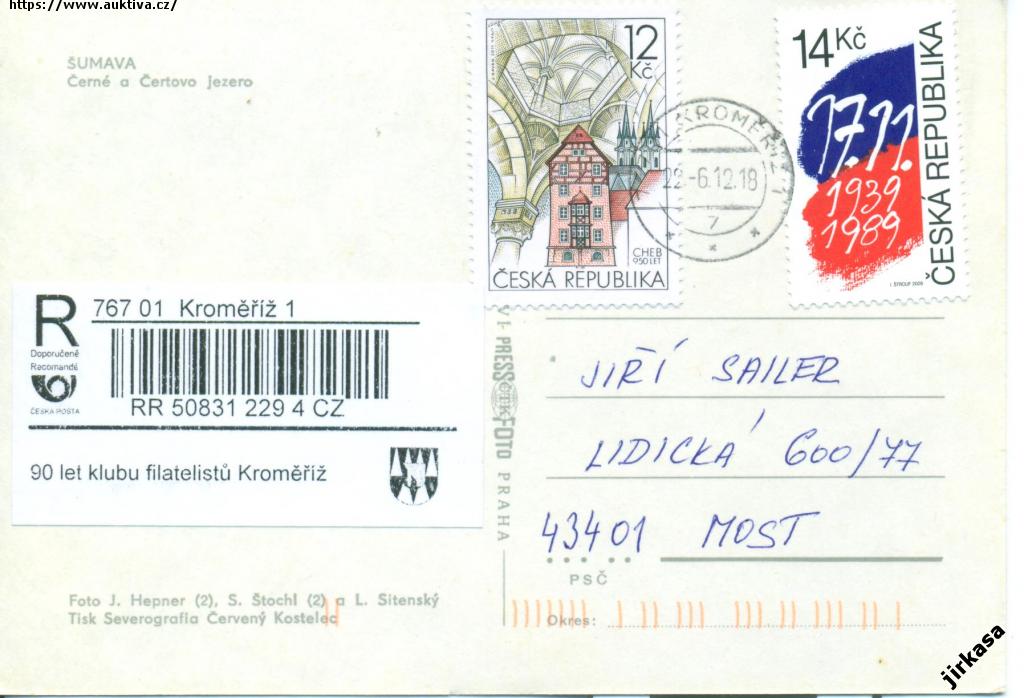 https://www.auktiva.cz/
ŠUMAVA
Černé a Čertovo jezero
12
Kč
CHEB
950 LET
ČESKÁ REPUBLIKA
KROMĚŘÍŽ 1
22.-6.12.18
7
14 Kč
17.11.
1939
1989
ČESKÁ REPUBLIKA
I. STROUF 2009
R
Doporučeně
Recomandé
ČESKÁ POSTA
767 01 Kroměříž 1
RR 50831 229 4 CZ
90 let klubu filatelistů Kroměříž
PRESSFOTO PRAHA
ČTK
JIŘÍ SAILER
LIDICKÁ 600/77
43401 MOST
PSČ
Okres:
Foto J. Hepner (2), S. Štochl (2) a L. Sitenský
Tisk Severografia Červený Kostelec
jirkasa